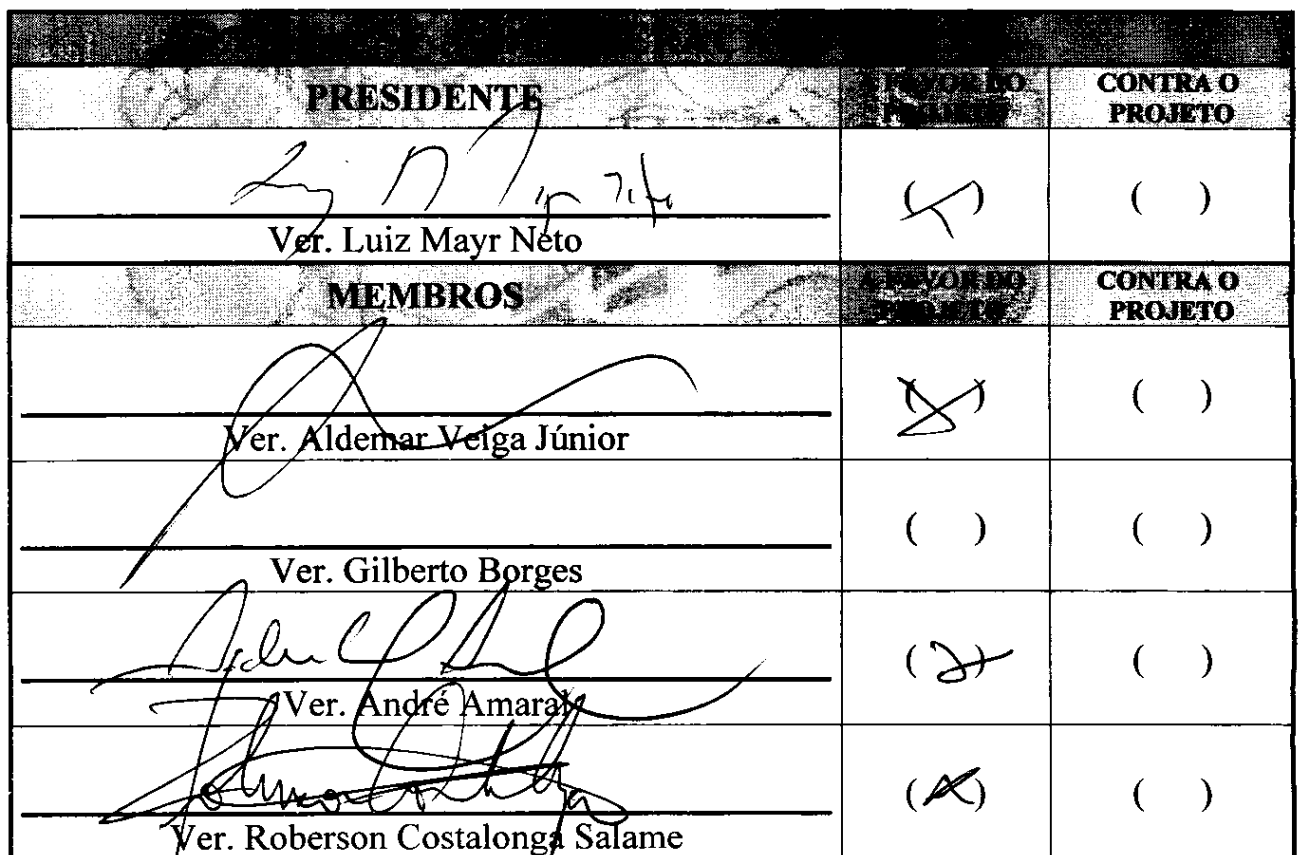 PRESIDENTE
A FAVOR DO PROJETO
CONTRA O PROJETO
( ) ( )
Ver. Luiz Mayr Neto
MEMBROS
A FAVOR DO PROJETO
CONTRA O PROJETO
( ) ( )
Ver. Aldemar Veiga Júnior
( ) ( )
Ver. Gilberto Borges
( ) ( )
Ver. André Amaral
( ) ( )
Ver. Roberson Costalonga Salame